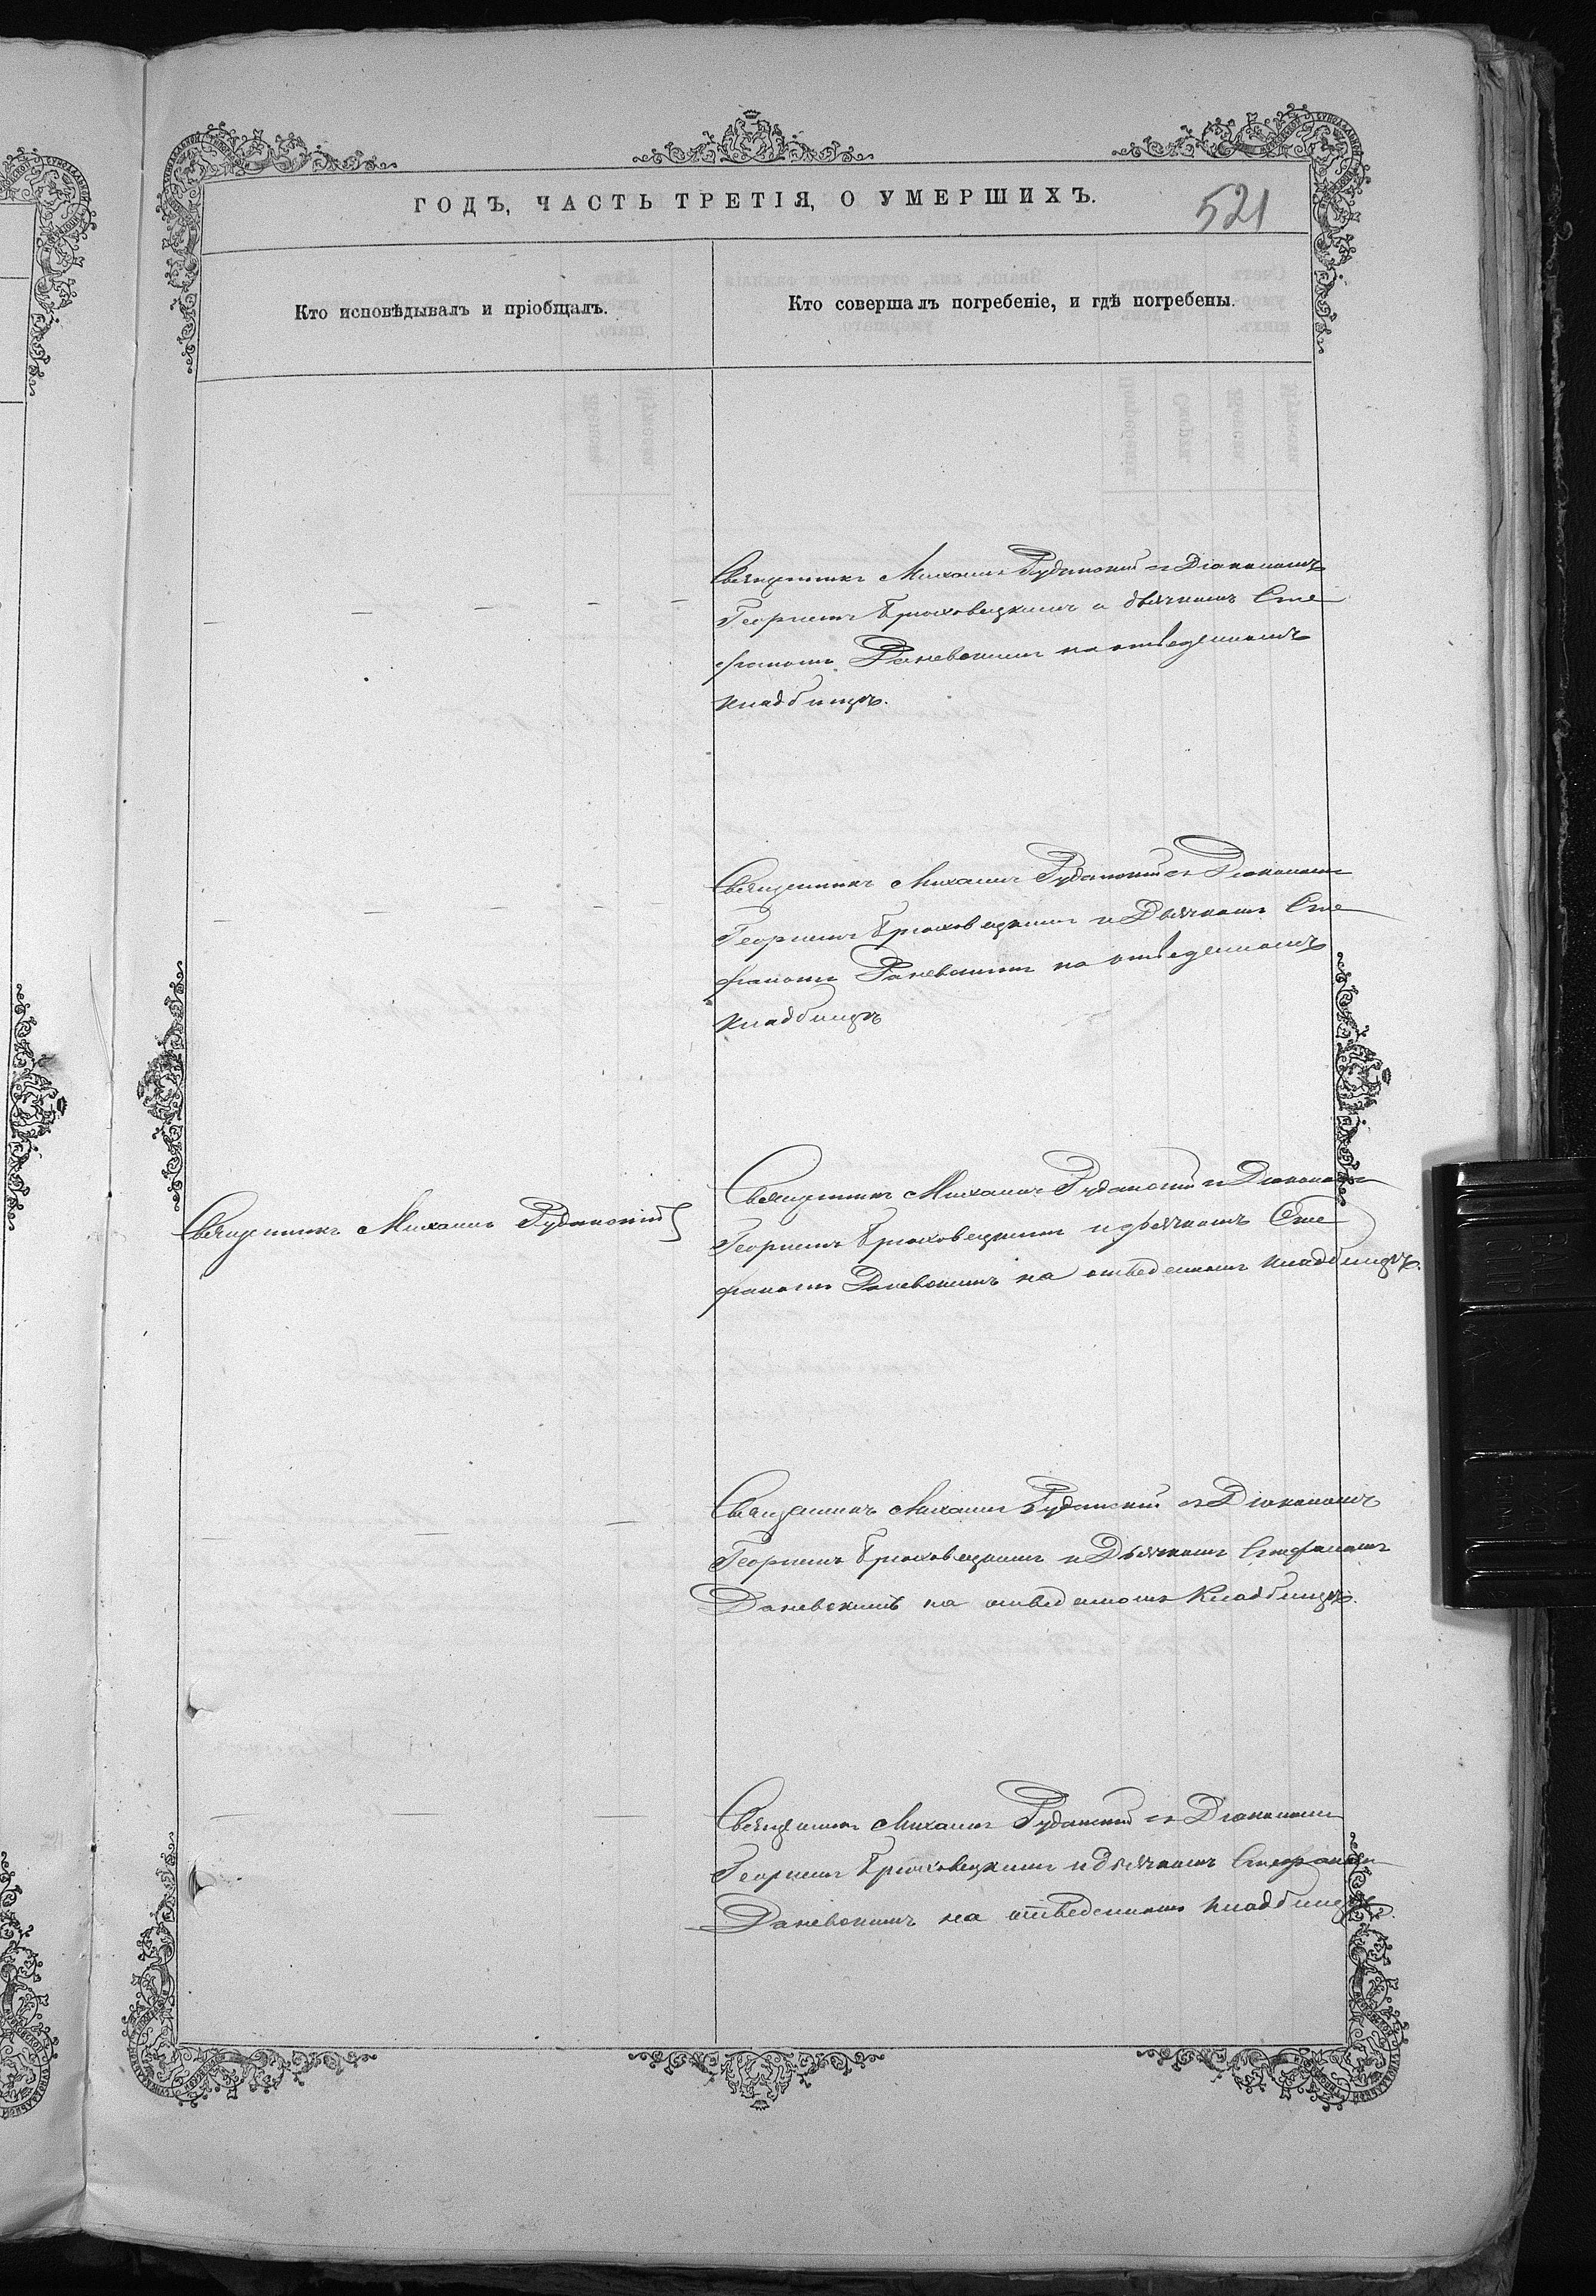 ГОДЪ, ЧАСТЬ ТРЕТІЯ, О УМЕРШИХЪ.
521
Кто исповѣдывалъ и пріобщалъ.
Кто совершалъ погребеніе, и гдѣ погребены.
Священникъ Михаилъ Рудинскій съ Діакономъ
Георгіемъ Брюховецкимъ и дьячкомъ Сте
фаномъ Раневскимъ на отведенномъ
кладбищѣ.
Священникъ Михаилъ Рудинскій съ Діакономъ
Георгіемъ Брюховецкимъ и Дьячкомъ Сте
фаномъ Раневскимъ на отведенномъ
кладбищѣ
Священникъ Михаилъ Рудинскій
Священникъ Михаилъ Рудинскій съ Діакономъ
Георгіемъ Брюховецкимъ и дьячкомъ Сте
фаномъ Раневскимъ на отведенномъ кладбищѣ.
Священникъ Михаилъ Рудинскій съ Діакономъ
Георгіемъ Брюховецкимъ и Дьячкомъ Стефаномъ
Раневскимъ на отведенномъ Кладбищѣ.
Священникъ Михаилъ Рудинскій съ Діакономъ
Георгіемъ Брюховецкимъ и дьячкомъ Стефаномъ
Раневскимъ на отведенномъ кладбищѣ.